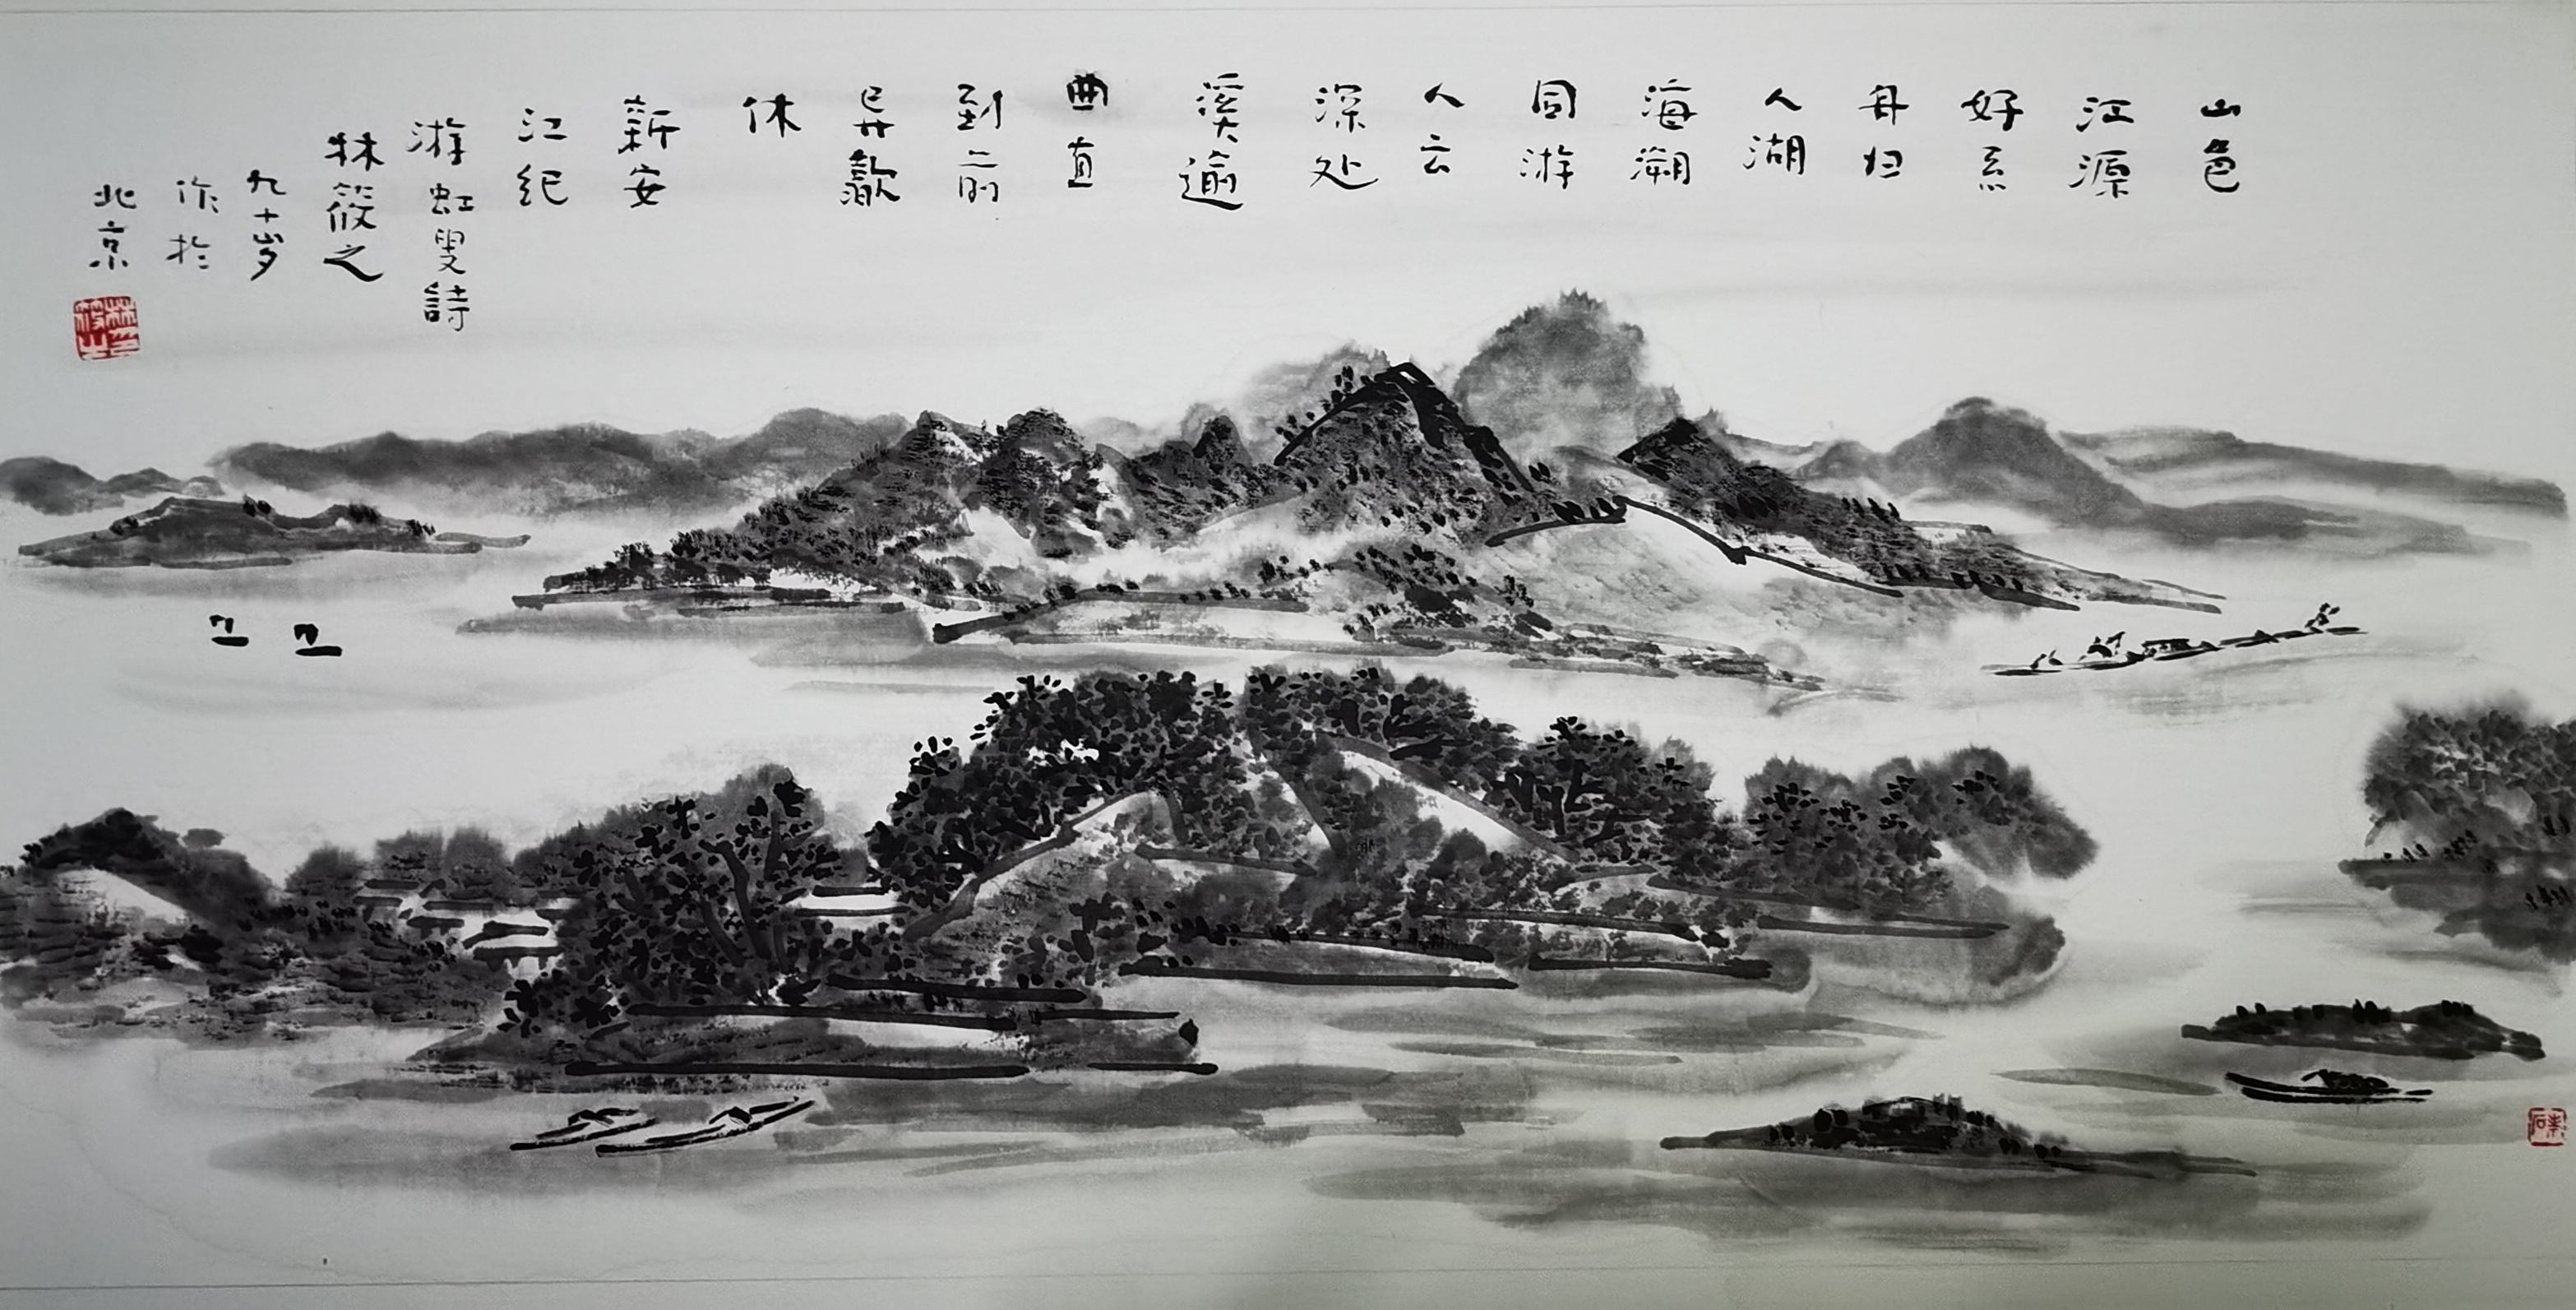 山色
江源
好系
舟归
人湖
海溯
同游
人云
深处
溪逾
曲直
到前
歙
休
新安
江纪
游虹叟詩
林筱之
九十岁
作於
北京
林筱之